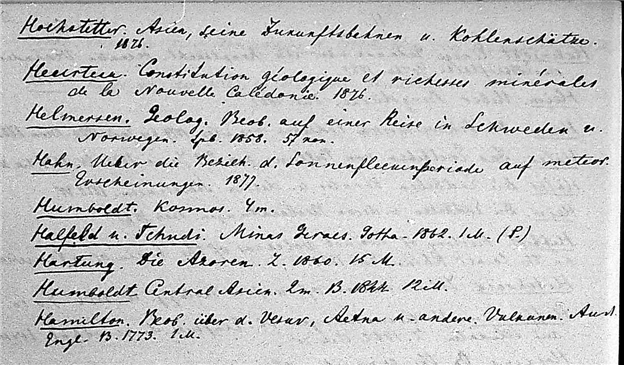 Hochstetter. Asien, seine Zukunftsbahnen u. Kohlenschätze.
1876.
Heurteau. Constitution géologique et richesses minérales
de la Nouvelle Calédonie. 1876.
Helmersen. Geolog. Beob. auf einer Reise in Schweden u.
Norwegen. Spb. 1858.
Hahn. Ueber die Bezieh. d. Sonnenfleckenperiode auf meteor.
Erscheinungen. 1877.
Humboldt. Kosmos. 4 m.
Halfeld u. Tchudi. Minas Geraes. Gotha. 1862. 1 M. (P.)
Hartung. Die Azoren. L. 1860. 15 M.
Humboldt Central Asien. 2 m. B. 1844. 12 M.
Hamilton. Beob. über d. Vesuv, Aetna u. andere. Vulkanen. Aus d.
Engl. B. 1773. 1 M.